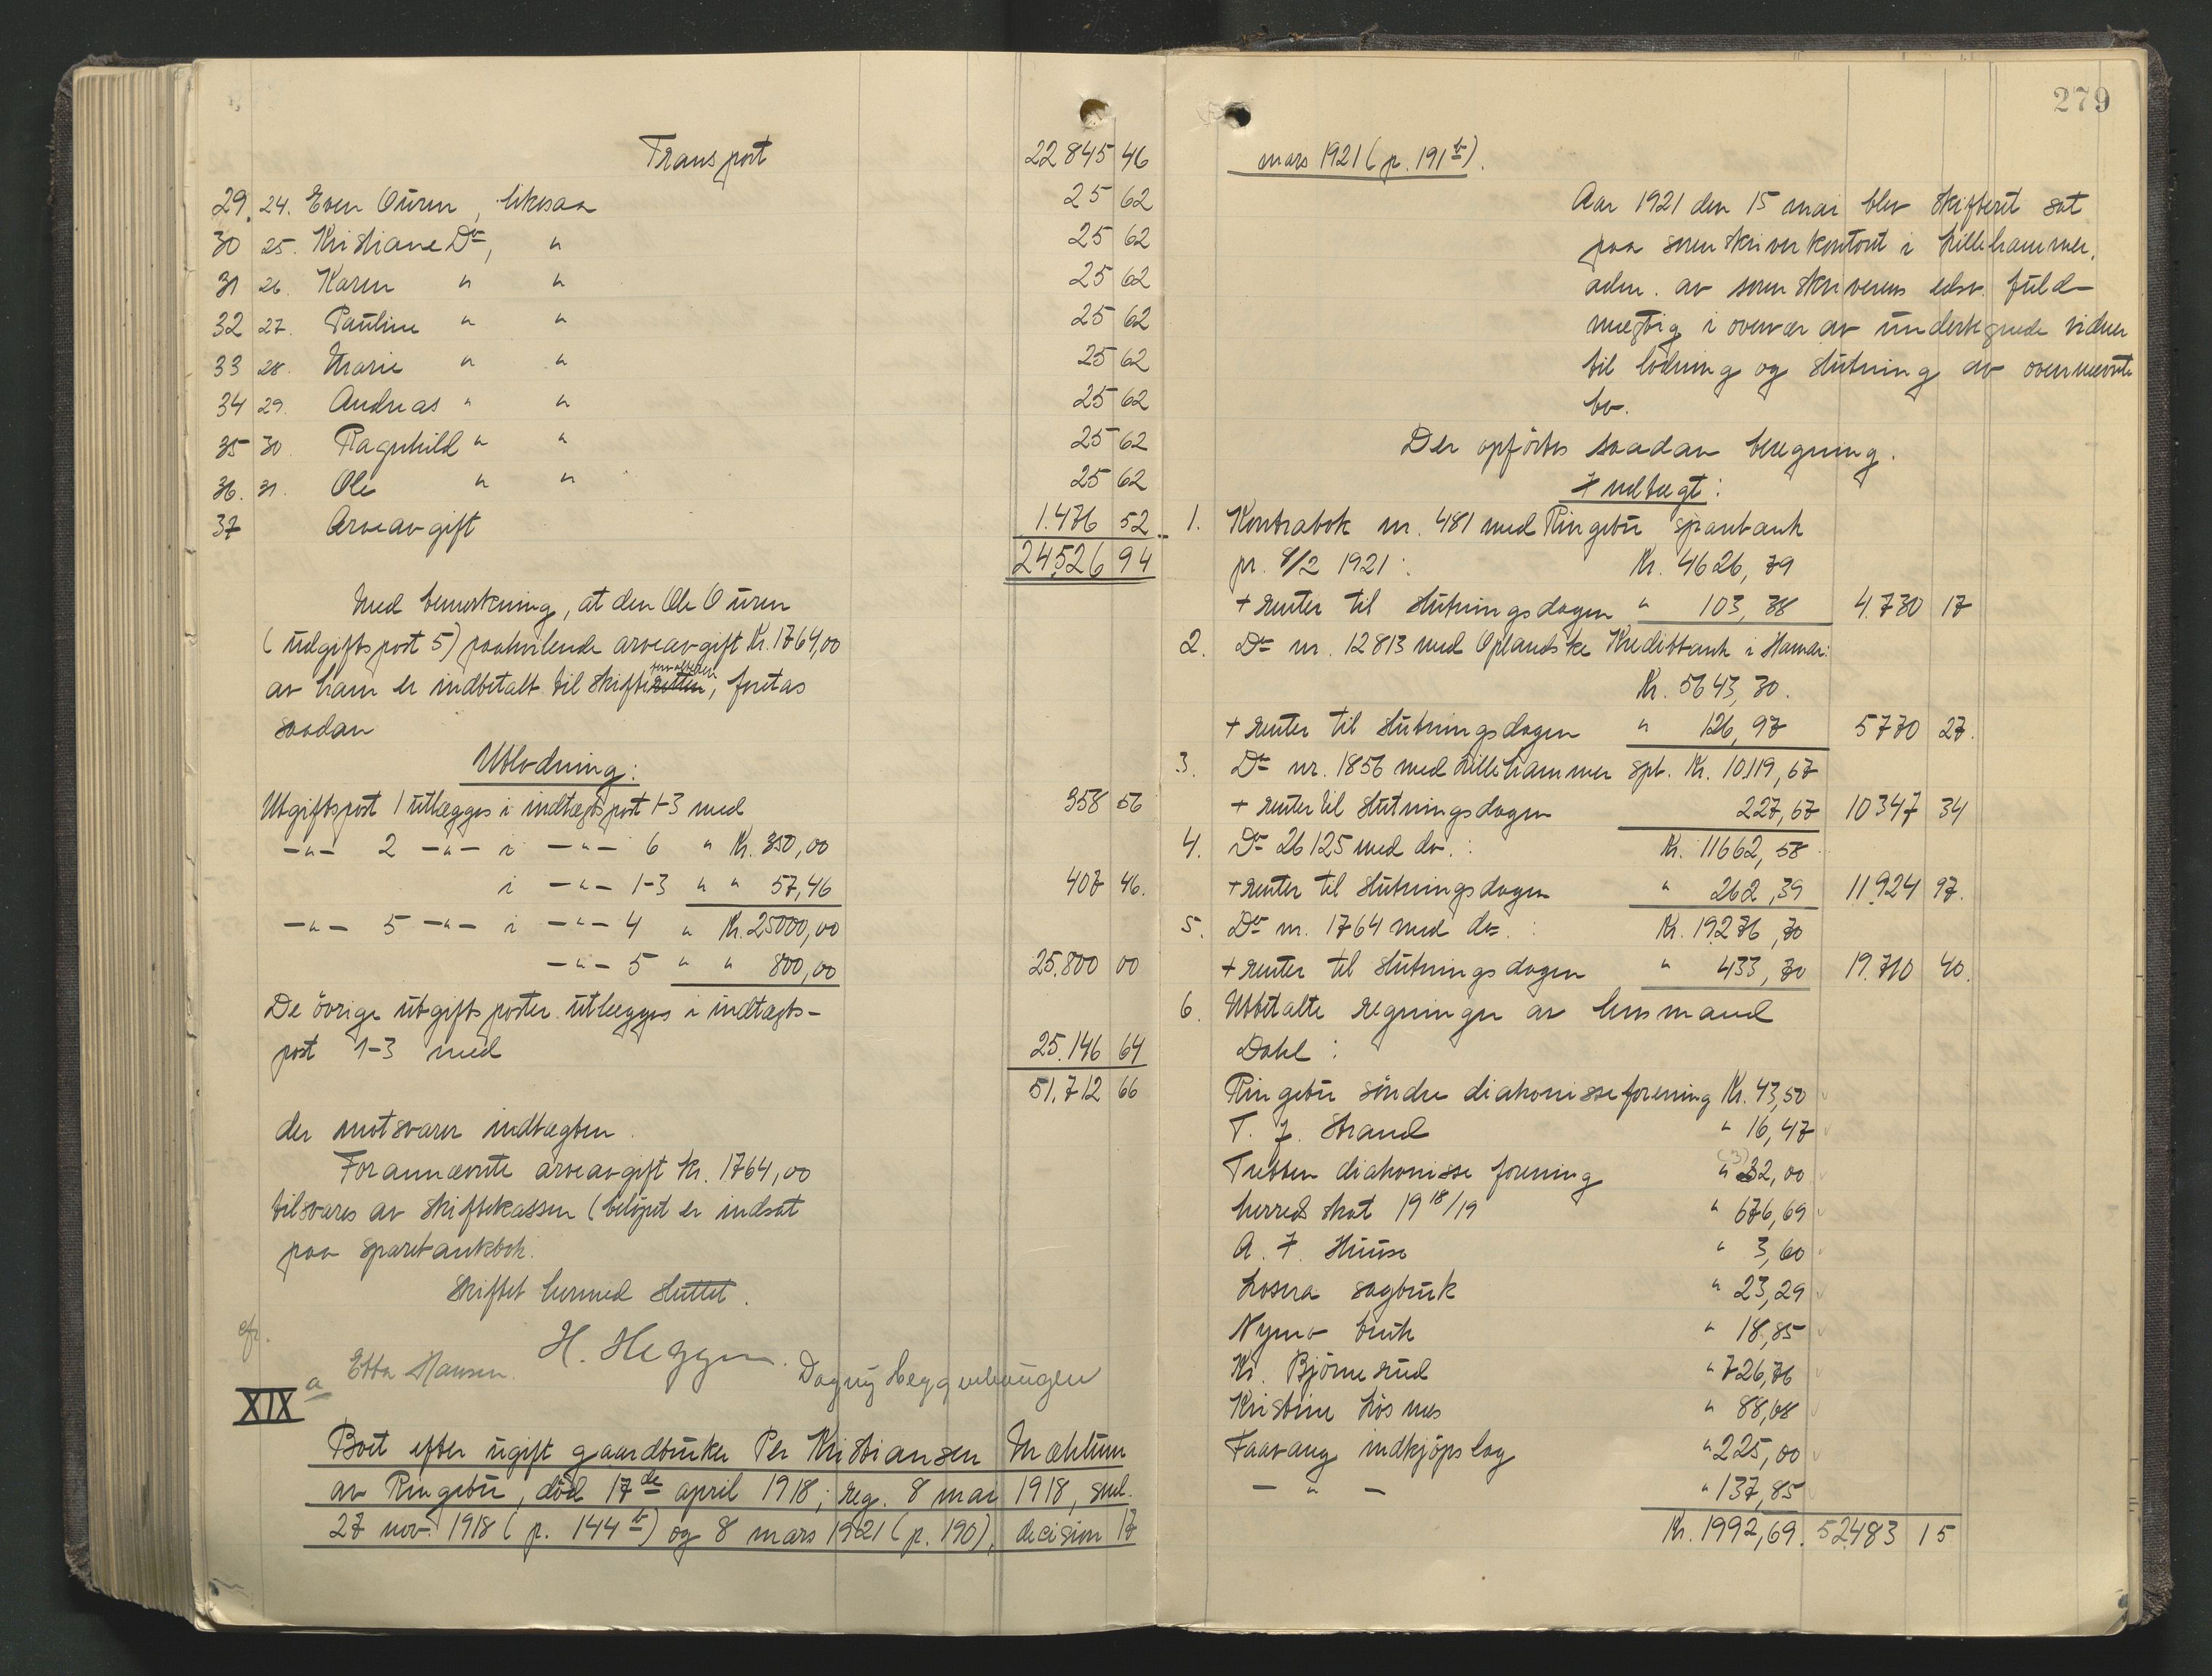 Transport 22845 46
29. 24. Even Ouren, likesaa 25 62
30 25. Kristiane Do, " 25 62
31 26. Karen " " 25 62
32 27. Pauline " " 25 62
33 28. Marie " " 25 62
34 29. Andreas " " 25 62
35 30. Ragnhild " " 25 62
36. 31. Ole " " 25 62
37 Arveavgift 1.476 52
24526 94
Med bemerkning, at den Ole Ouren
(utgiftspost 5) paahvilende arveavgift Kr. 1764,00
av ham er indbetalt til skifteretten, foretas
saadan
Utlodning:
Utgiftspost 1 utlægges i indtægtspost 1-3 med 358 56
-"- 2 -"- i -"- 6 " Kr. 350,00
i -"- 1-3 " " 57,46 407 46.
-"- 5 -"- i -"- 4 " Kr. 25000,00
-"- 5 " " 800,00 25.800 00
De övrige utgiftsposter utlægges i indtægts-
post 1-3 med 25.146 64
51.712 66
der motsvarer indtægten.
Forannævnte arveavgift kr. 1764,00
tilsvares av skiftekassen (belöpet er indsat
paa sparebankbok.
Skiftet hermed sluttet.
cfr.
H. Heggen.
Etta Hansen. Dagny Heggenhougen
XIX a
Boet efter ugift gaardbruker Per Kristiansen Mæhlum
av Ringebu, död 17de april 1918; reg. 8 mai 1918, sml.
27 nov. 1918 (p. 144b) og 8 mars 1921 (p. 190), decision 17
279
mars 1921 (p. 191b).
Aar 1921 den 15 mai blev skifteret sat
paa sorenskriverkontoret i Lillehammer,
adm. av sorenskriverens edsv. fuld-
mægtig i overvær av undertegnede vidner
til lodning og slutning av ovennævnte
bo.
Der opförtes saadan beregning.
Indtægt:
1. Kontrabok nr. 481 med Ringebu sparebank
pr. 8/2 1921: Kr. 4626,79
+ renter til slutningsdagen " 103,38 4.730 17
2. Do nr. 12813 med Oplandske Kreditbank i Hamar:
Kr. 5643,30.
+ renter til slutningsdagen " 126,97 5770 27.
3. Do nr. 1856 med Lillehammer spb. Kr. 10119,67
+ renter til slutningsdagen 227,67 10347 34
4. Do 26125 med do. : Kr. 11662,58
+ renter til slutningsdagen " 262,39 11.924 97.
5. Do nr. 1764 med do. : Kr. 19276,70
+ renter til slutningsdagen " 433,70 19.710 40.
6. Utbetalte regninger av lensmand
Dahl:
Ringebu söndre diakonisseforening Kr. 43,50
T. J. Strand " 16,47
Tretten diakonisseforening " 32,00
(3)
herredsskat 1918/19 " 676,69
A. F. Huuse " 3,60
Losna sagbruk " 23,29
Nymo bruk " 18,85
Kr. Björnerud " 726,76
Kristine Losnes " 88,68
Faavang indkjöpslag " 225,00
- " - " 137,85
Kr. 1992,69. 52483 15